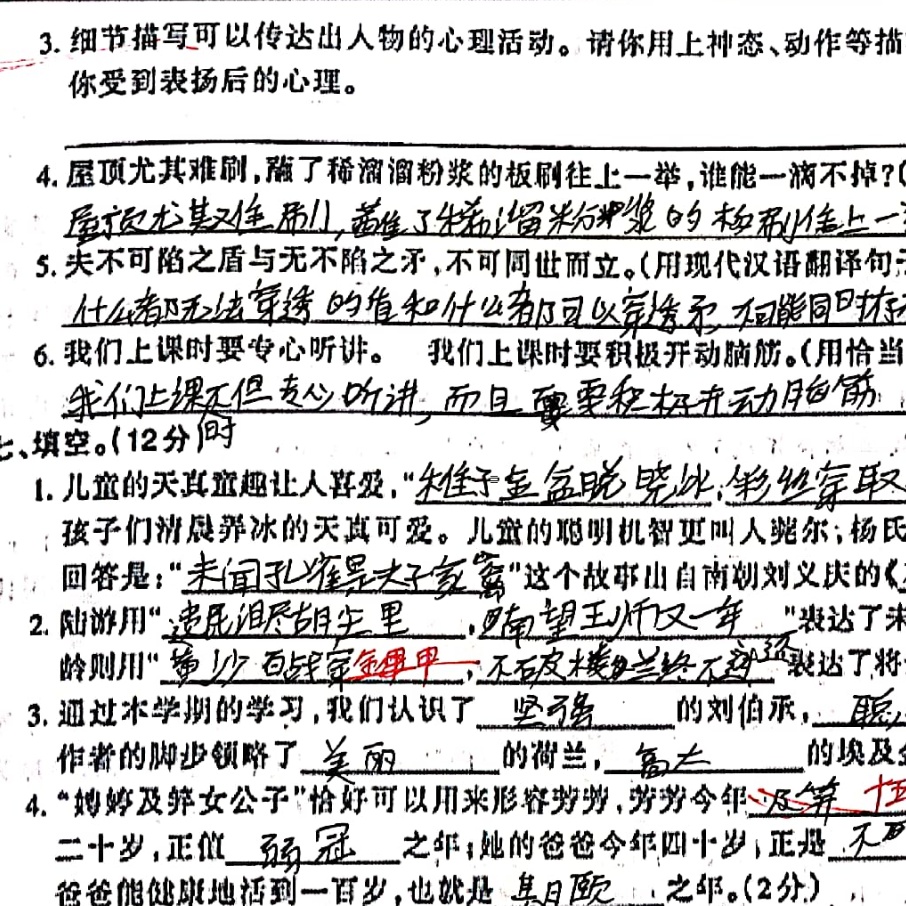 3. 细节描写可以传达出人物的心理活动。请你用上神态、动作等描
你受到表扬后的心理。
4. 屋顶尤其难刷，蘸了稀溜溜粉浆的板刷往上一举，谁能一滴不掉？(
屋顶尤其难刷，蘸了稀溜粉浆的板刷往上一
5. 夫不可陷之盾与无不陷之矛，不可同世而立。(用现代汉语翻译句
什么都无法穿透的盾和什么都可以穿透矛 不可能同时存
6. 我们上课时要专心听讲。 我们上课时要积极开动脑筋。(用恰当
我们上课不但专心听讲，而且要积极开动脑筋
七、填空。(12分) 时
1. 儿童的天真童趣让人喜爱，“稚子金盆脱晓冰，彩丝穿取
孩子们清晨弄冰的天真可爱。儿童的聪明机智更叫人莞尔；杨氏
回答是：“未闻孔雀是夫子家禽”这个故事出自南朝刘义庆的《
2. 陆游用“遗民泪尽胡尘里，南望王师又一年”表达了
龄则用“黄沙百战穿金甲，不破楼兰终不还”表达了将
3. 通过本学期的学习，我们认识了 坚强 的刘伯承， 聪
作者的脚步领略了 美丽 的荷兰， 高大 的埃及
4. “娉婷及笄女公子”恰好可以用来形容芳芳，芳芳今年 及笄 十五
二十岁，正值 弱冠 之年；她的爸爸今年四十岁，正是 不
爸爸能健康地活到一百岁，也就是 期颐 之年。(2分)